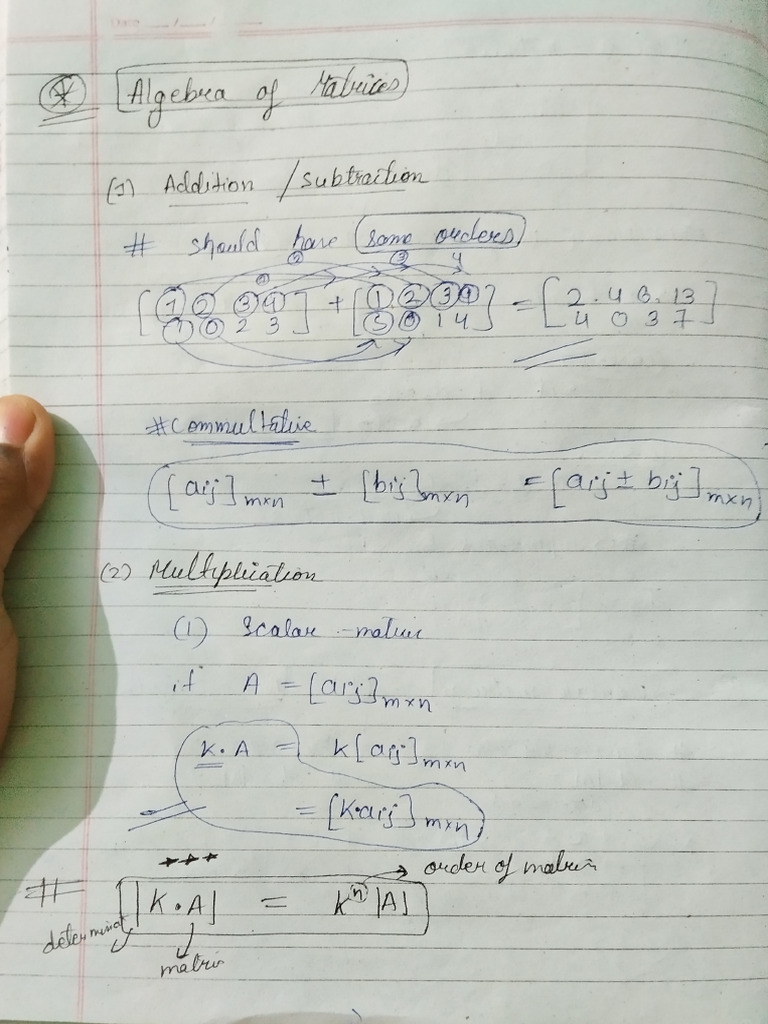 Algebra of Matrices
(1) Addition / subtraction
# should have same orders
② ③ 4
[ 1 2 3 9 ] + [ 1 2 3 4 ] = [ 2 . 4 6 . 13 ]
[ 0 2 3 ] [ 5 0 1 4 ] [ 4 0 3 7 ]
# Commultative
[aij]m×n ± [bij]m×n = [aij ± bij]m×n
(2) Multiplication
(1) Scalar - matrix
if A = [aij]m×n
K·A = k[aij]m×n
= [K·aij]m×n
# |K·A| = k^n |A| → order of matrix
determinat
matrix